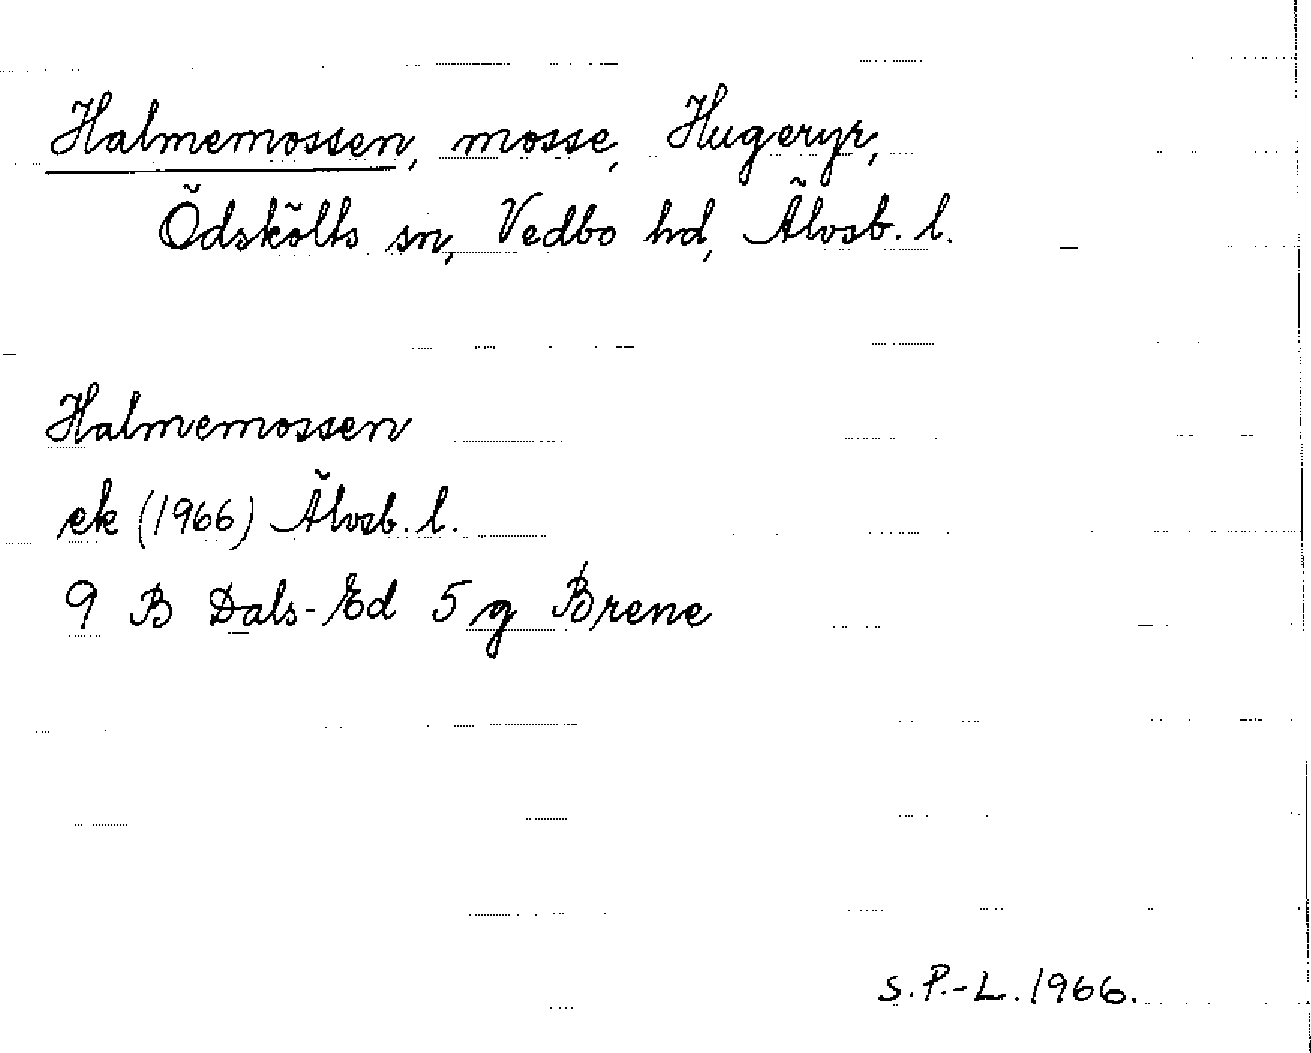 Halmemossen, mosse, Hugeryr,
Ödskölts sn, Vedbo hd, Älvsb. l.
Halmemossen
ek (1966) Älvsb. l.
9 B Dals-Ed 5 g Brene
S. P.-L. 1966.